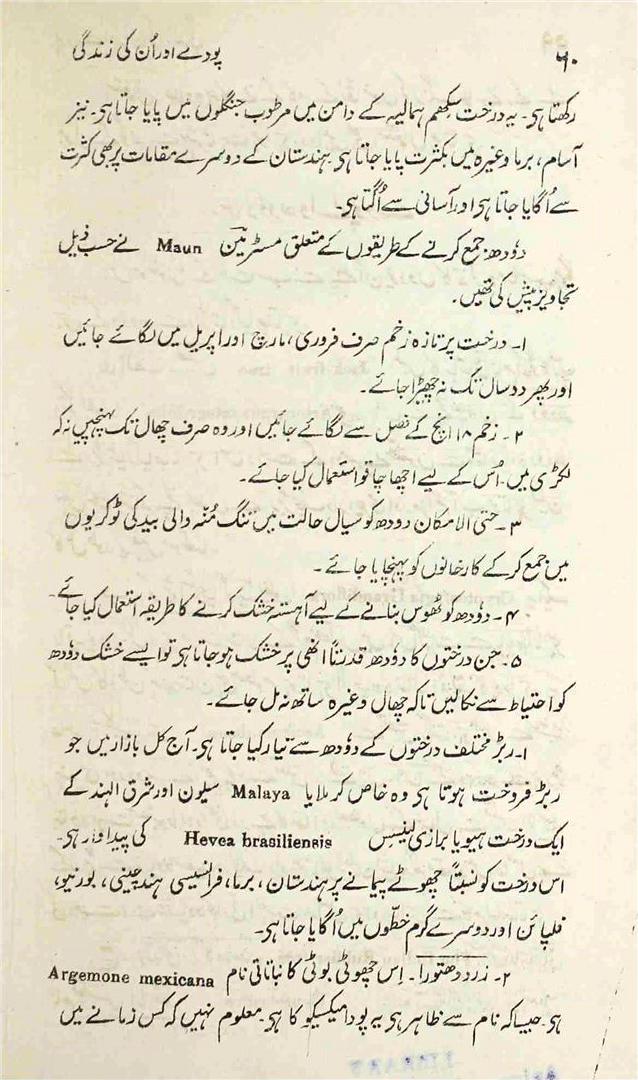 ۶۰ پودے اور اُن کی زندگی
رکھتا ہی۔ یہ درخت سکھم ہمالیہ کے دامن میں مرطوب جنگلوں میں پایا جاتا ہی۔ نیز
آسام، برما وغیرہ میں بکثرت پایا جاتا ہی ہندستان کے دوسرے مقامات پر بھی کثرت
سے اُگایا جاتا ہی اور آسانی سے اُگتا ہی۔
دؤدھ جمع کرنے کے طریقوں کے متعلق مسٹر مَین Maun نے حسب ذیل
تجاویز پیش کی تھیں۔
۱۔ درخت پر تازہ زخم صرف فروری، مارچ اور اپریل میں لگائے جائیں
اور پھر دو سال تک نہ چھیڑا جائے۔
۲۔ زخم ۱۸ انچ کے فصل سے لگائے جائیں اور وہ صرف چھال تک پہنچیں نہ کہ
لکڑی میں۔ اُس کے لیے اچھا چاقو استعمال کیا جائے۔
۳۔ حتی الامکان دودھ کو سیال حالت میں تنگ مُنہ والی بید کی ٹوکریوں
میں جمع کرکے کارخانوں کو پہنچایا جائے۔
۴۔ دؤدھ کو ٹھوس بنانے کے لیے آہستہ خشک کرنے کا طریقہ استعمال کیا جائے۔
۵۔ جن درختوں کا دؤدھ قدرتاً انھی پر خشک ہوجاتا ہی تو ایسے خشک دؤدھ
کو احتیاط سے نکالیں تاکہ چھال وغیرہ ساتھ نہ مل جائے۔
۱۔ ربڑ مختلف درختوں کے دؤدھ سے تیار کیا جاتا ہی۔ آج کل بازار میں جو
ربڑ فروخت ہوتا ہی وہ خاص کر ملایا Malaya سیلون اور شرق الہند کے
ایک درخت ہیویا برازی لینسِس Hevea brasiliensis کی پیداوار ہی۔
اس درخت کو نسبتاً چھوٹے پیمانے پر ہندستان، برما، فرانسیسی ہند چینی، بورنیو،
فلپائن اور دوسرے گرم خطّوں میں اُگایا جاتا ہی۔
۲۔ زرد دھتورا۔ اِس چھوٹی بوٹی کا نباتاتی نام Argemone mexicana
ہی۔ جیسا کہ نام سے ظاہر ہی یہ پودا میکسیکو کا ہی۔ معلوم نہیں کہ کس زمانے میں